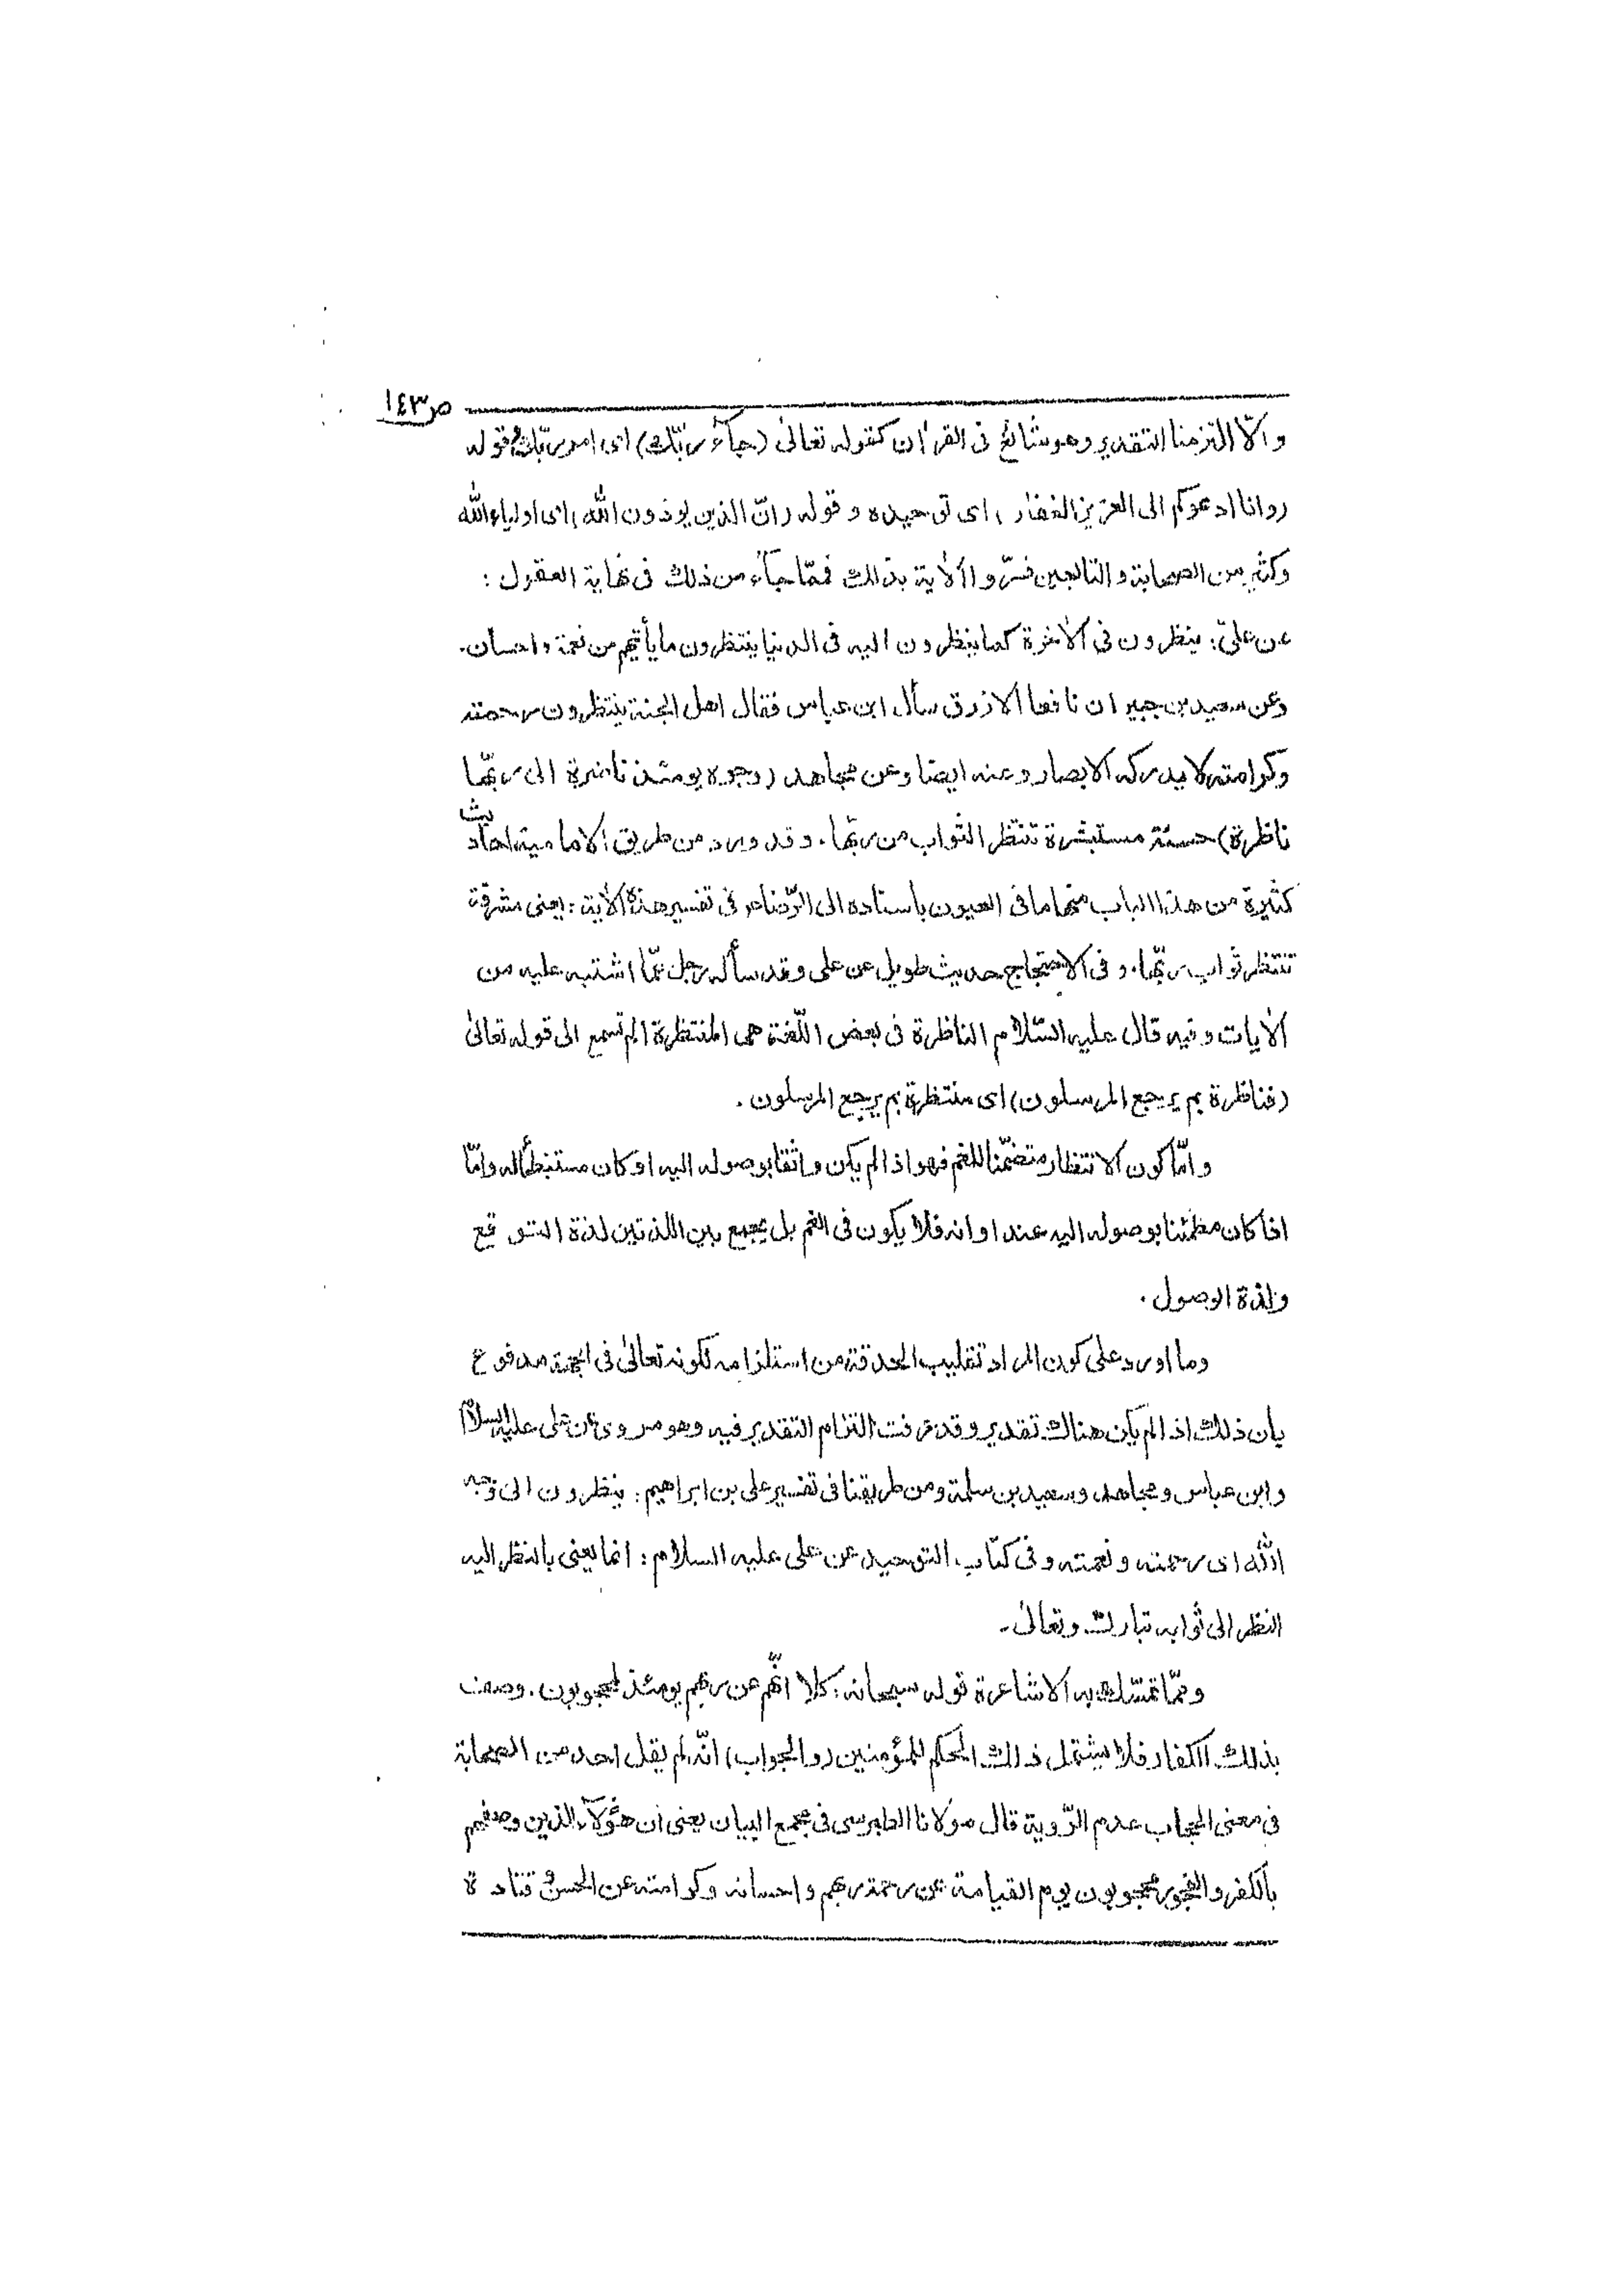 ص١٤٣
والّا التزمنا التقدير وهو شائع فى القرآن كقوله تعالىٰ (جآء ربّك) اى امر ربّك وقوله
(وانا ادعوكم الى العزيز الغفار) اى توحيده وقوله (انّ الذين يوذون اللّٰه) اى اولياء اللّٰه
وكثير من الصحابة والتابعين فسّروا الآية بذلك فممّا جآء من ذلك فى نهاية العقول :
عن علىّ: ينظرون فى الآخرة كما ينظرون اليه فى الدنيا ينتظرون ما يأتيهم من نعمة واحسان.
وعن سعيد بن جبير ان نافعا الازرق سأل ابن عباس فقال اهل الجنة ينتظرون رحمته
وكرامته لا يدركه الابصار وعنه ايضا وعن مجاهد (وجوه يومئذ ناضرة الى ربّها
ناظرة) حسنة مستبشرة تنتظر الثواب من ربّها. وقد ورد من طريق الامامية احاديث
كثيرة من هذا الباب منها ما فى العيون باسناده الى الرّضاء فى تفسير هذه الآية: يعنى مشرقة
تنتظر ثواب ربّها. وفى الاحتجاج حديث طويل عن على وقد سأله رجل عمّا اشتبه عليه من
الآيات وفيه قال عليه السّلام الناظرة فى بعض اللّغة هى المنتظرة الم تسمع الى قوله تعالىٰ
(فناظرة بم يرجع المرسلون) اى منتظرة بم يرجع المرسلون .
وامّا كون الانتظار متضمّنا للغم فهو اذا لم يكن واثقا بوصوله اليه او كان مستبطأً له وامّا
اذا كان مطمئنا بوصوله اليه عند اوانه فلا يكون فى الغم بل يجمع بين اللذتين لذة التوقيع
ولذة الوصول .
وما اورد على كون المراد تقليب الحدقة من استلزامه لكونه تعالىٰ فى الجهة مدفوع
بأن ذلك اذا لم يكن هناك تقدير وقد عرفت التزام التقدير فيه وهو مروى عن على عليه السلام
وابن عباس ومجاهد وسعيد بن سلمة ومن طريقنا فى تفسير على بن ابراهيم: ينظرون الى وجه
اللّٰه اى رحمته ونعمته وفى كتاب التوحيد عن على عليه السلام : انما يعنى بالنظر اليه
النظر الى ثوابه تبارك وتعالىٰ.
وممّا تمسّك به الاشاعرة قوله سبحانه: كلا انّهم عن ربهم يومئذ لمحجوبون. وصف
بذلك الكفار فلا يشتمل ذلك الحكم للمؤمنين (والجواب) انّه لم يقل احد من الصحابة
فى معنى الحجاب عدم الرّوية قال مولانا الطبرسى فى مجمع البيان يعنى ان هؤلآء الذين وصفهم
بالكفر والفجور محجوبون يوم القيامة عن رحمة ربهم واحسانه وكرامته عن الحسن وقتادة